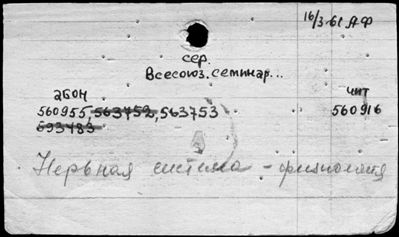 16/3-61 АФ
сер.
Всесоюз. семинар...
абон чит
560955, 563752, 563753 560916
593483
Нервная система - физиология